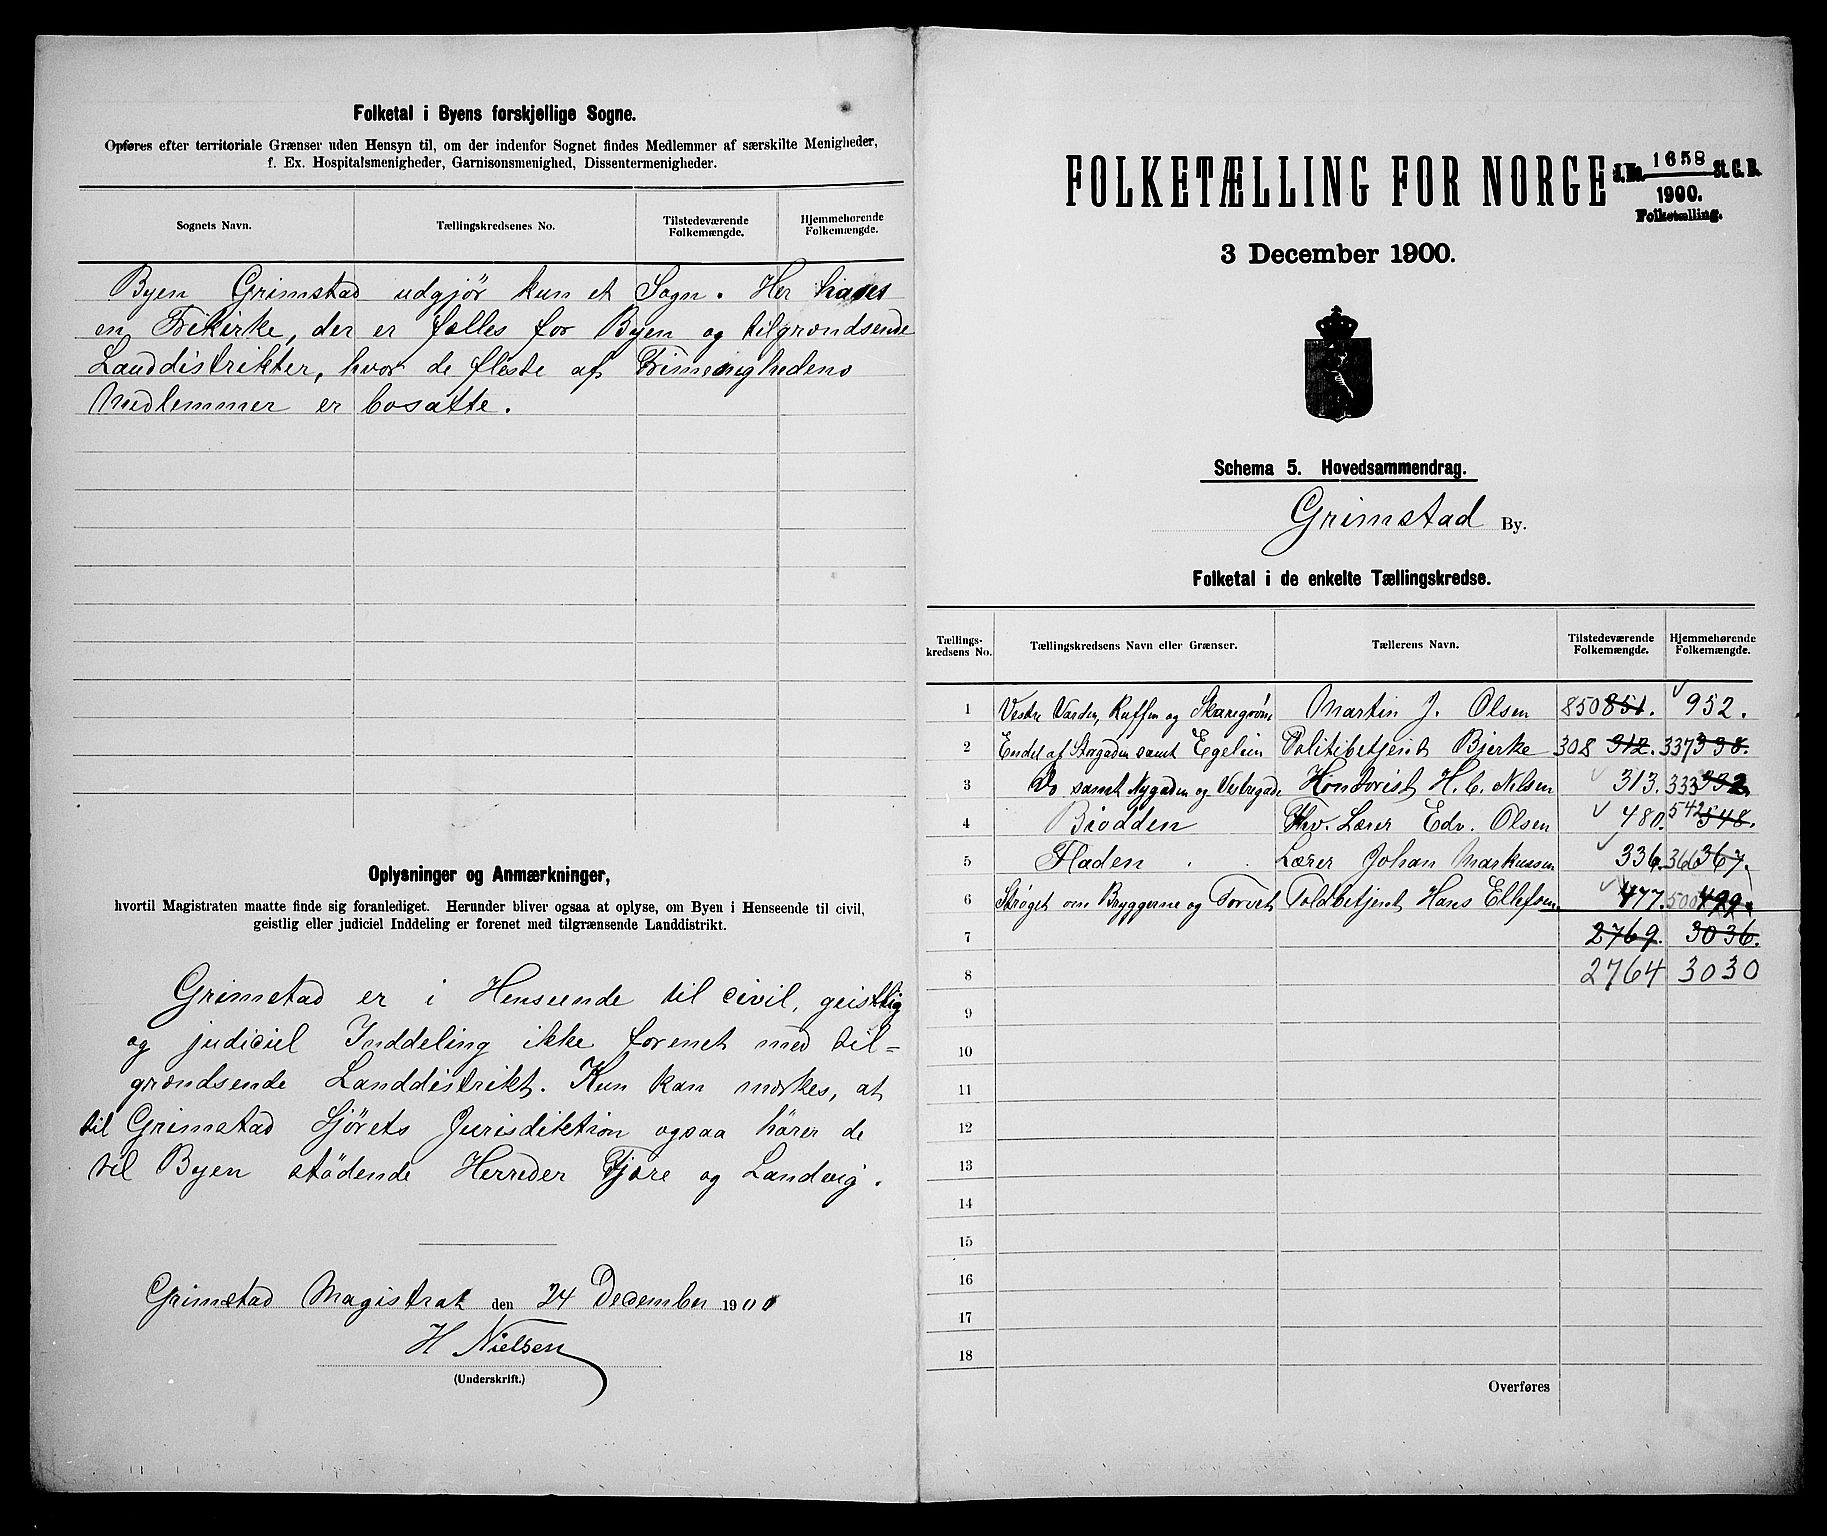 Folketal i Byens forskjellige Sogne.
Opføres efter territoriale Grænser uden Hensyn til, om der indenfor Sognet findes Medlemmer af særskilte Menigheder,
f. Ex. Hospitalsmenigheder, Garnisonsmenighed, Dissentermenigheder.
Sognets Navn. Tællingskredsenes No. Tilstedeværende Folkemængde. Hjemmehørende Folkemængde.
Byen Grimstad udgjør kun et Sogn. Her haves
en Frikirke, der er fælles for Byen og tilgrændsende
Landdistrikter, hvor de fleste af Frimenighedens
Medlemmer er bosatte.
Oplysninger og Anmærkninger,
hvortil Magistraten maatte finde sig foranlediget. Herunder bliver ogsaa at oplyse, om Byen i Henseende til civil,
geistlig eller judiciel Inddeling er forenet med tilgrænsende Landdistrikt.
Grimstad er i Henseende til civil, geistlig
og judiciel Inddeling ikke forenet med til=
grændsende Landdistrikt. Kun kan mærkes, at
til Grimstad Sjørets Jurisdiktion ogsaa hører de
til Byen stødende Herreder Fjære og Landvig.
Grimstad Magistrat den 24 December 1900
H Nielsen
(Underskrift.)
FOLKETÆLLING FOR NORGE
J. No. 1658 St. C. B.
1900.
Folketælling.
3 December 1900.
Schema 5. Hovedsammendrag.
Grimstad By.
Folketal i de enkelte Tællingskredse.
Tællings-kredsens No. Tællingskredsens Navn eller Grænser. Tællerens Navn. Tilstedeværende Folkemængde. Hjemmehørende Folkemængde.
1 Vestre Varden, Kuffen og Skaregrøm Martin J. Olsen 850 851. 952.
2 Endel af Storgaden samt Egelien Politibetjent Bjerke 308 312. 337 338.
3 Do samt Nygaden og Vestregade H. C. Nilsen 313. 333 332
4 Biodden Lærer Edv. Olsen 480. 542 548.
5 Fladen Lærer Johan Markussen 336. 366 367.
6 Strøget om Bryggerne og Torvet Toldbetjent Hans Ellefsen 477. 500 499.
7 2769. 3036.
8 2764 3030
9
10
11
12
13
14
15
16
17
18
Overføres